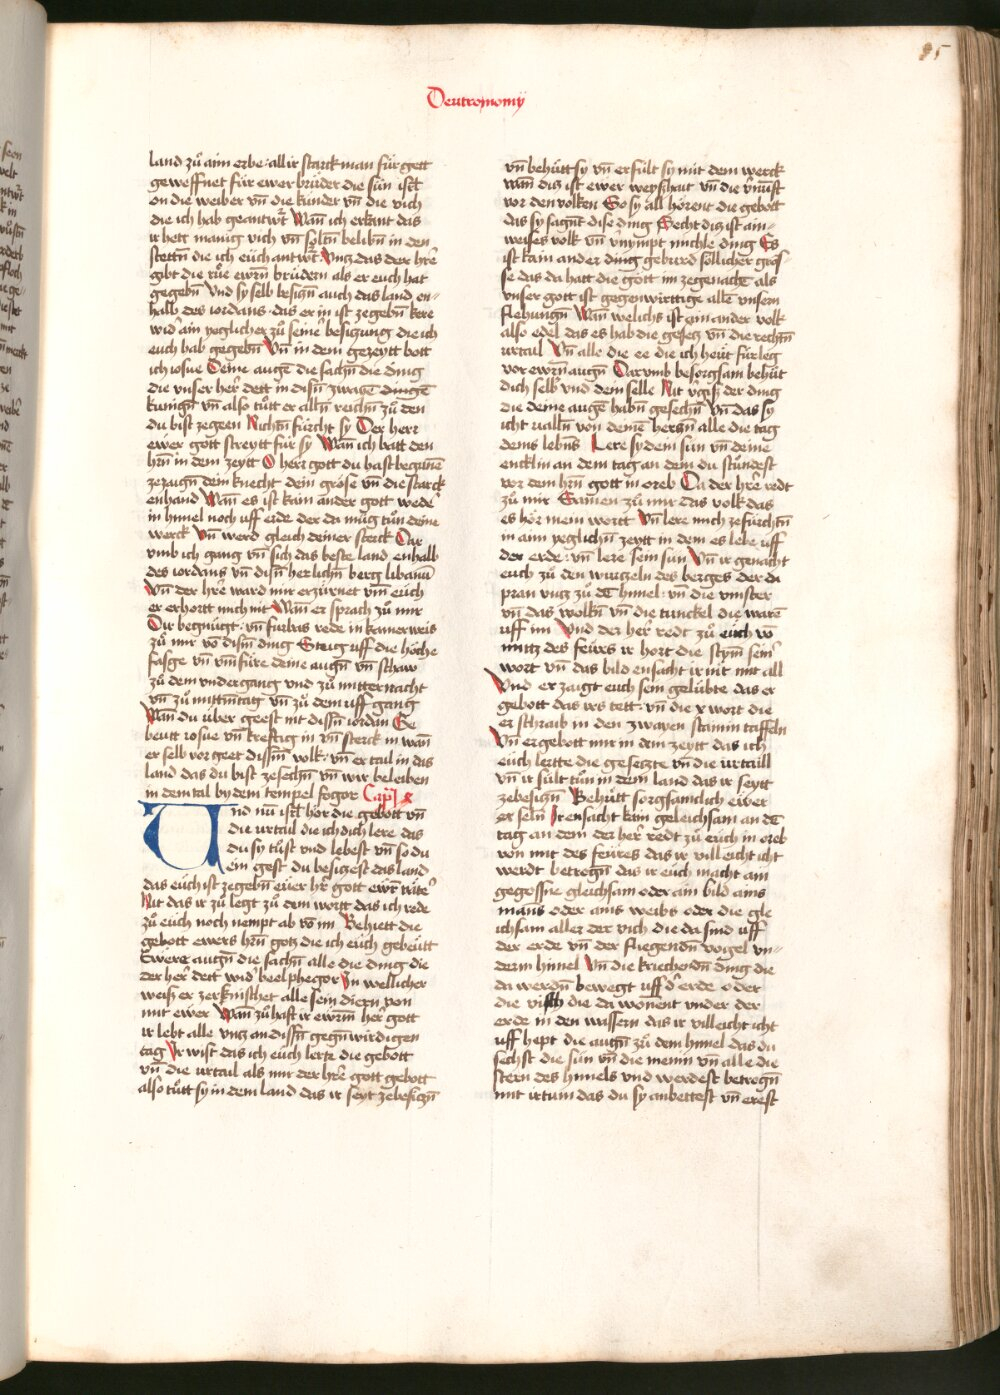 95
Deutronomÿ
land zů ain erbe · all ir starck man für gett
geweffnet für ewer brüder die sün isrl̄
on die weiber vn̄ die kinder vn̄ die vich
die ich hab geantwr̄t Wan̄ ich erkant das
ir hett manig vich vn̄ sy̋ltn̄ belibn̄ in den
stettn̄ die ich euch antwr̄t Vntz das der hr̄e
gibt die růe ewrn̄ brüdern als er euch hat
gegebn̄ Vnd sy selb besign̄ auch das land en-
halb des iordans · das er in ist zegebn̄ kere
wid' ain yeglicher zů seine besitzung die ich
euch hab gegebn̄ Vn̄ in dem gezeytt bott
ich iosue Deine augē die sachn̄ die ding
die vnser her' dett in disn̄ zwayē dingē
kunign̄ vn̄ also tůtt er alln̄ reichn̄ zů den
du bist zegeen Nichtn̄ fürcht sy Der herr
ewer gott streytt für sy Wan̄ ich batt den
hrn̄ in dem zeytt O herr gott du hast begunē
zezaign̄ dein knecht dein gröse vn̄ die starck
enhand Wan̄ es ist kain ander gott weder
in himel noch uff erde der da mug tün deine
werck Vn̄ werd gleich deiner sterck Dar
vmb ich gang vn̄ sich das beste land enhalb
des iordans vn̄ disn̄ herlichn̄ berg libanū
Vn̄ der hr̄e ward mir erzürnet vm̄ euch
er erhortt mich nit Wan̄ er sprach zů mir
Dir begnügt · vn̄ fürbas rede in kainer weis
zů mir vō disn̄ ding Steig uff die höche
fasge vn̄ vm̄füre deine augn̄ vn̄ schaw
zů dem vndergang vnd zů mitternacht
vn̄ zů mittn̄tag vn̄ zů dem uff gang
Wan̄ du über geest nit dissn̄ iordan Ge
beutt iosue vn̄ kreftig in vn̄ sterck in wan̄
er selb vorgeet dissm̄ volk · vn̄ er tail in das
land das du bist zesechn̄ vn̄ wir beleiben
in dem tal by dem tempel fogor Capl̄ x
Und nū isrl̄ hör die gebott vn̄
die urtail die ich dich lere das
du sy tüst vnd lebest vn̄ so du
ein gest du besigest das land
das euch ist zegebn̄ euer hr̄ gott ewr̄ väter'
Nit das ir zů legt zů dem wortt das ich rede
zů euch noch nempt ab vō im Behiett die
gebott ewers hrn̄ gotz die ich euch gebeutt
Ewere augn̄ die sachn̄ alle die ding die
der her' dett wid' beelphegor In wellicher
weis er zerknisthet alle sein diern von
mit ewer Wan̄ zůhaft ir ewrm̄ her' gott
ir lebt alle vntz an dissn̄ gegn̄wirdigen
tag Ir wist das ich euch lertz die gebott
vn̄ die urtail als mir der hr̄e gott gebott
also tůtt sy in dem land das ir seyt zebesign̄
vn̄ behütt sy vn̄ erfült sy mit dem werck
wan̄ dis ist ewer weyshait vn̄ die v̄nuft
vor den volken So sy all hörent die gebott
das sy sagnt dise ding Secht dis ist ain-
weises volk vn̄ v̄nympt michle ding Es
ist kain ander ding geburd söllicher gros-
se das da hatt die gött im zegenachē als
vnser gott ist gegenwirttige allē vnsern
flehungn̄ Wan̄ welichs ist ain ander volk
also edel das es hab die geseg vn̄ die rechtn̄
urtail Vn̄ alle die ee die ich heüt für leg
vor ewrn̄ augn̄ Darvmb besorgsam behüt
dich selb' vnd dem selle Nit v̄giss der ding
die deine augē habn̄ gesechn̄ Vn̄ das sy
icht valln̄ von deinē hertzn̄ alle die tag
deins lebns Lere sy dem sün vn̄ deine
encklin an dem tag an dem du stündest
vor dem hrn̄ gott in oreb Da der hr̄e redt
zů mir Samen zů mir das volk das
es hör mein wortt Vn̄ lere mich zefürchtn̄
in ain yeglichn̄ zeytt in dem es lebe uff
der erde : vn̄ lere sein sün Vn̄ ir genacht
euch zů den wurgeln des berges der da
pran vntz zů dē himel : vn̄ die vinster
vn̄ das wolkn̄ vn̄ die tunckel die warē
uff im Vnd der her' redt zů euch vō
mittz des feürs ir hort die stym̄ sein'
wort vn̄ das bild ensacht ir nit mit all
Vnd er zaigt euch sein gelübte das er
gebott das irs tett · vn̄ die x wort die
er schraib in den zwayen stainin taffeln
Vn̄ er gebott mir in dem zeytt das ich
euch lertte die gesetzte vn̄ die urtaill
vn̄ ir sült tůn in dem land das ir seytt
zebesign̄ Behütt sorgsamclich ewer
selln̄ Ir ensacht kain geleichsam an dē
tag an dem der her' redt zů euch in oreb
von mit des feüres das ir villeicht icht
werdt betrogn̄ das ir euch macht ain
gegossne gleichsam oder ain bild ains
mans oder ains weibs oder die gle
ichsam aller der vich die da sind uff
der erde vn̄ der fliegendn̄ vogel vn-
derm himel Vn̄ die kriechendn̄ ding die
da werdn̄ bewegt uff d' erde oder
die visch die da wonent vnder der
erde in den wassern das ir villeicht icht
uff hept die augn̄ zů dem himel das du
sechst die sün vn̄ die menin vn̄ alle die
stern des himels vnd werdest betrogn̄
mit irtum das du sy anbettest vn̄ erest